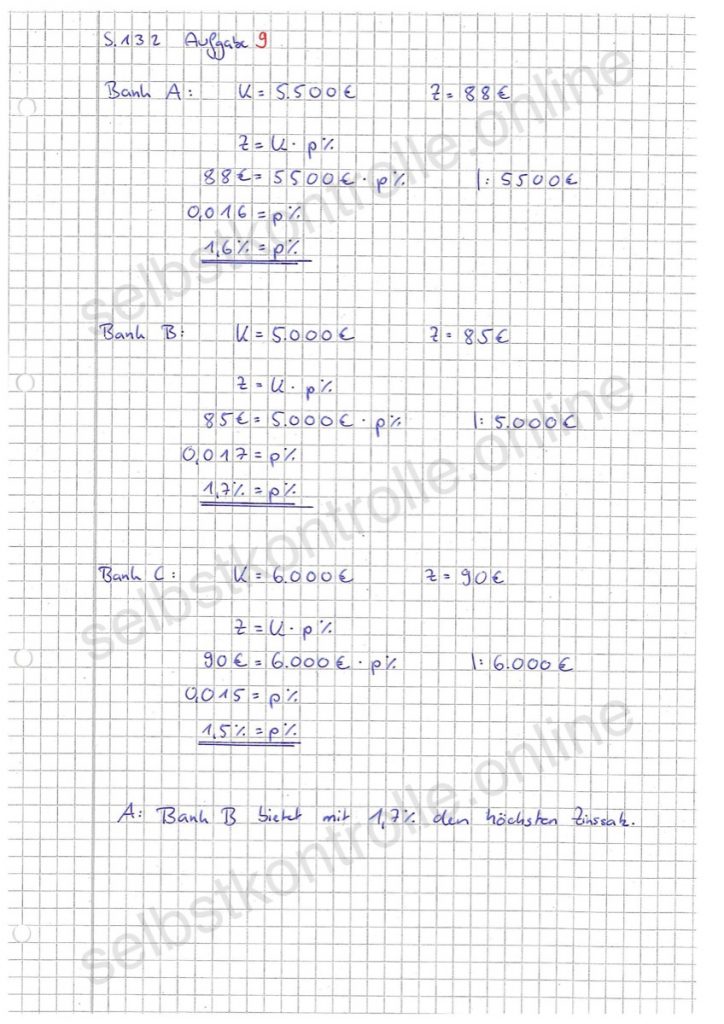 S.132 Aufgabe 9
Bank A: K = 5.500€ Z = 88€
Z = K · p%
88€ = 5500€ · p% |: 5500€
0,016 = p%
1,6% = p%
Bank B: K = 5.000€ Z = 85€
Z = K · p%
85€ = 5.000€ · p% |: 5.000€
0,017 = p%
1,7% = p%
Bank C: K = 6.000€ Z = 90€
Z = K · p%
90€ = 6.000€ · p% |: 6.000€
0,015 = p%
1,5% = p%
A: Bank B bietet mit 1,7% den höchsten Zinssatz.
selbstkontrolle.online
selbstkontrolle.online
selbstkontrolle.online